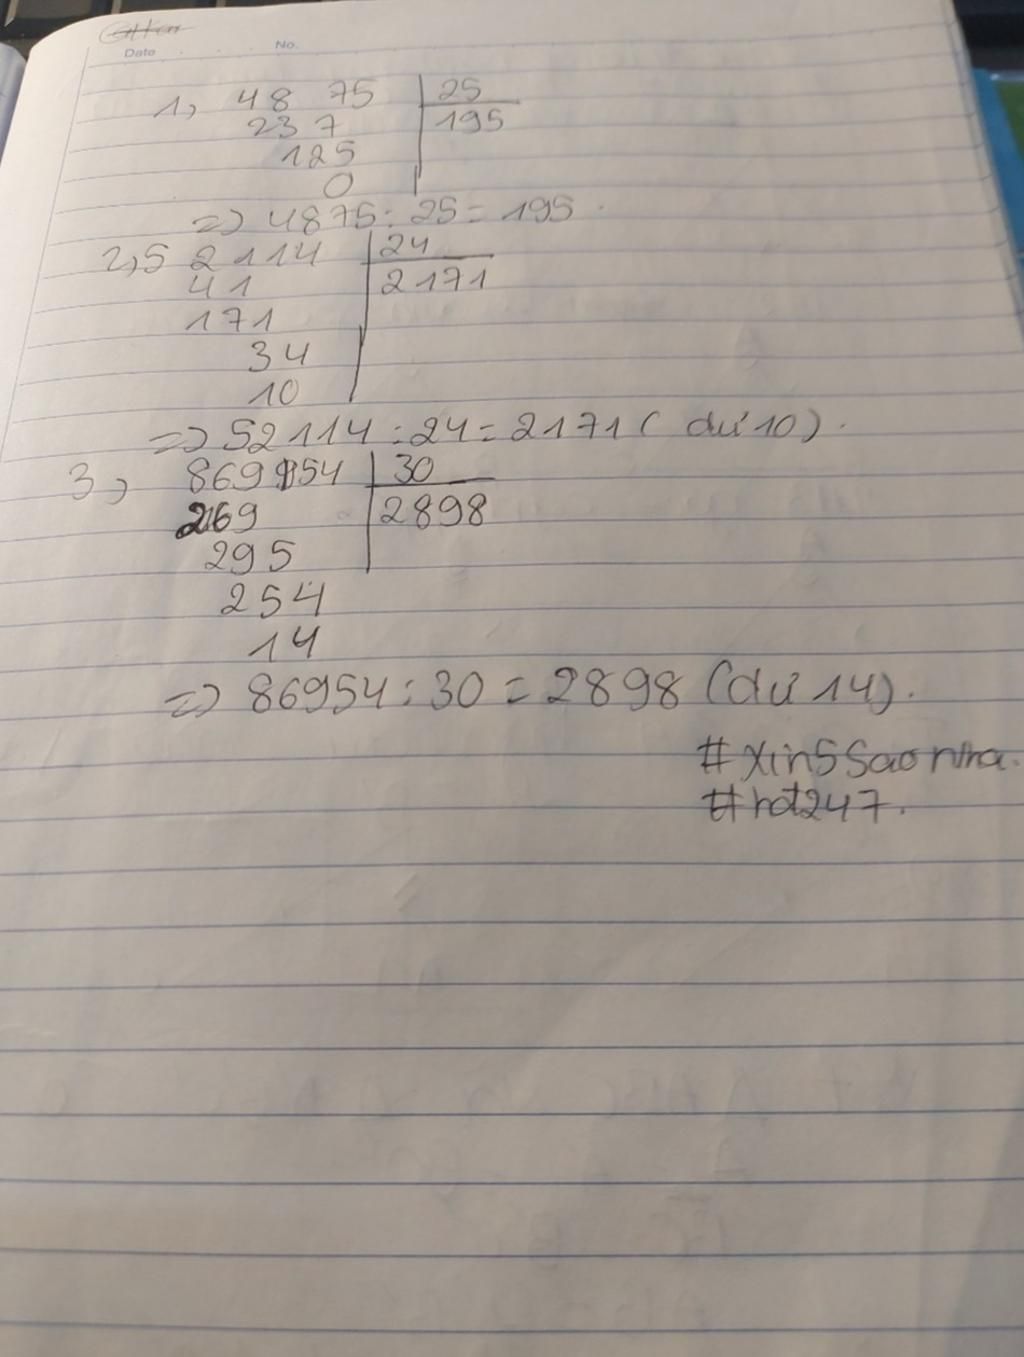 Date No.
1, 48 75 25
237 195
125
0
=> 4875 : 25 = 195.
2, 52114 24
41 2171
171
34
10
=> 52114 : 24 = 2171 ( dư 10 ).
3, 869954 30
269 2898
295
254
14
=> 86954 : 30 = 2898 (dư 14).
#xin5saonha.
#hdt247.